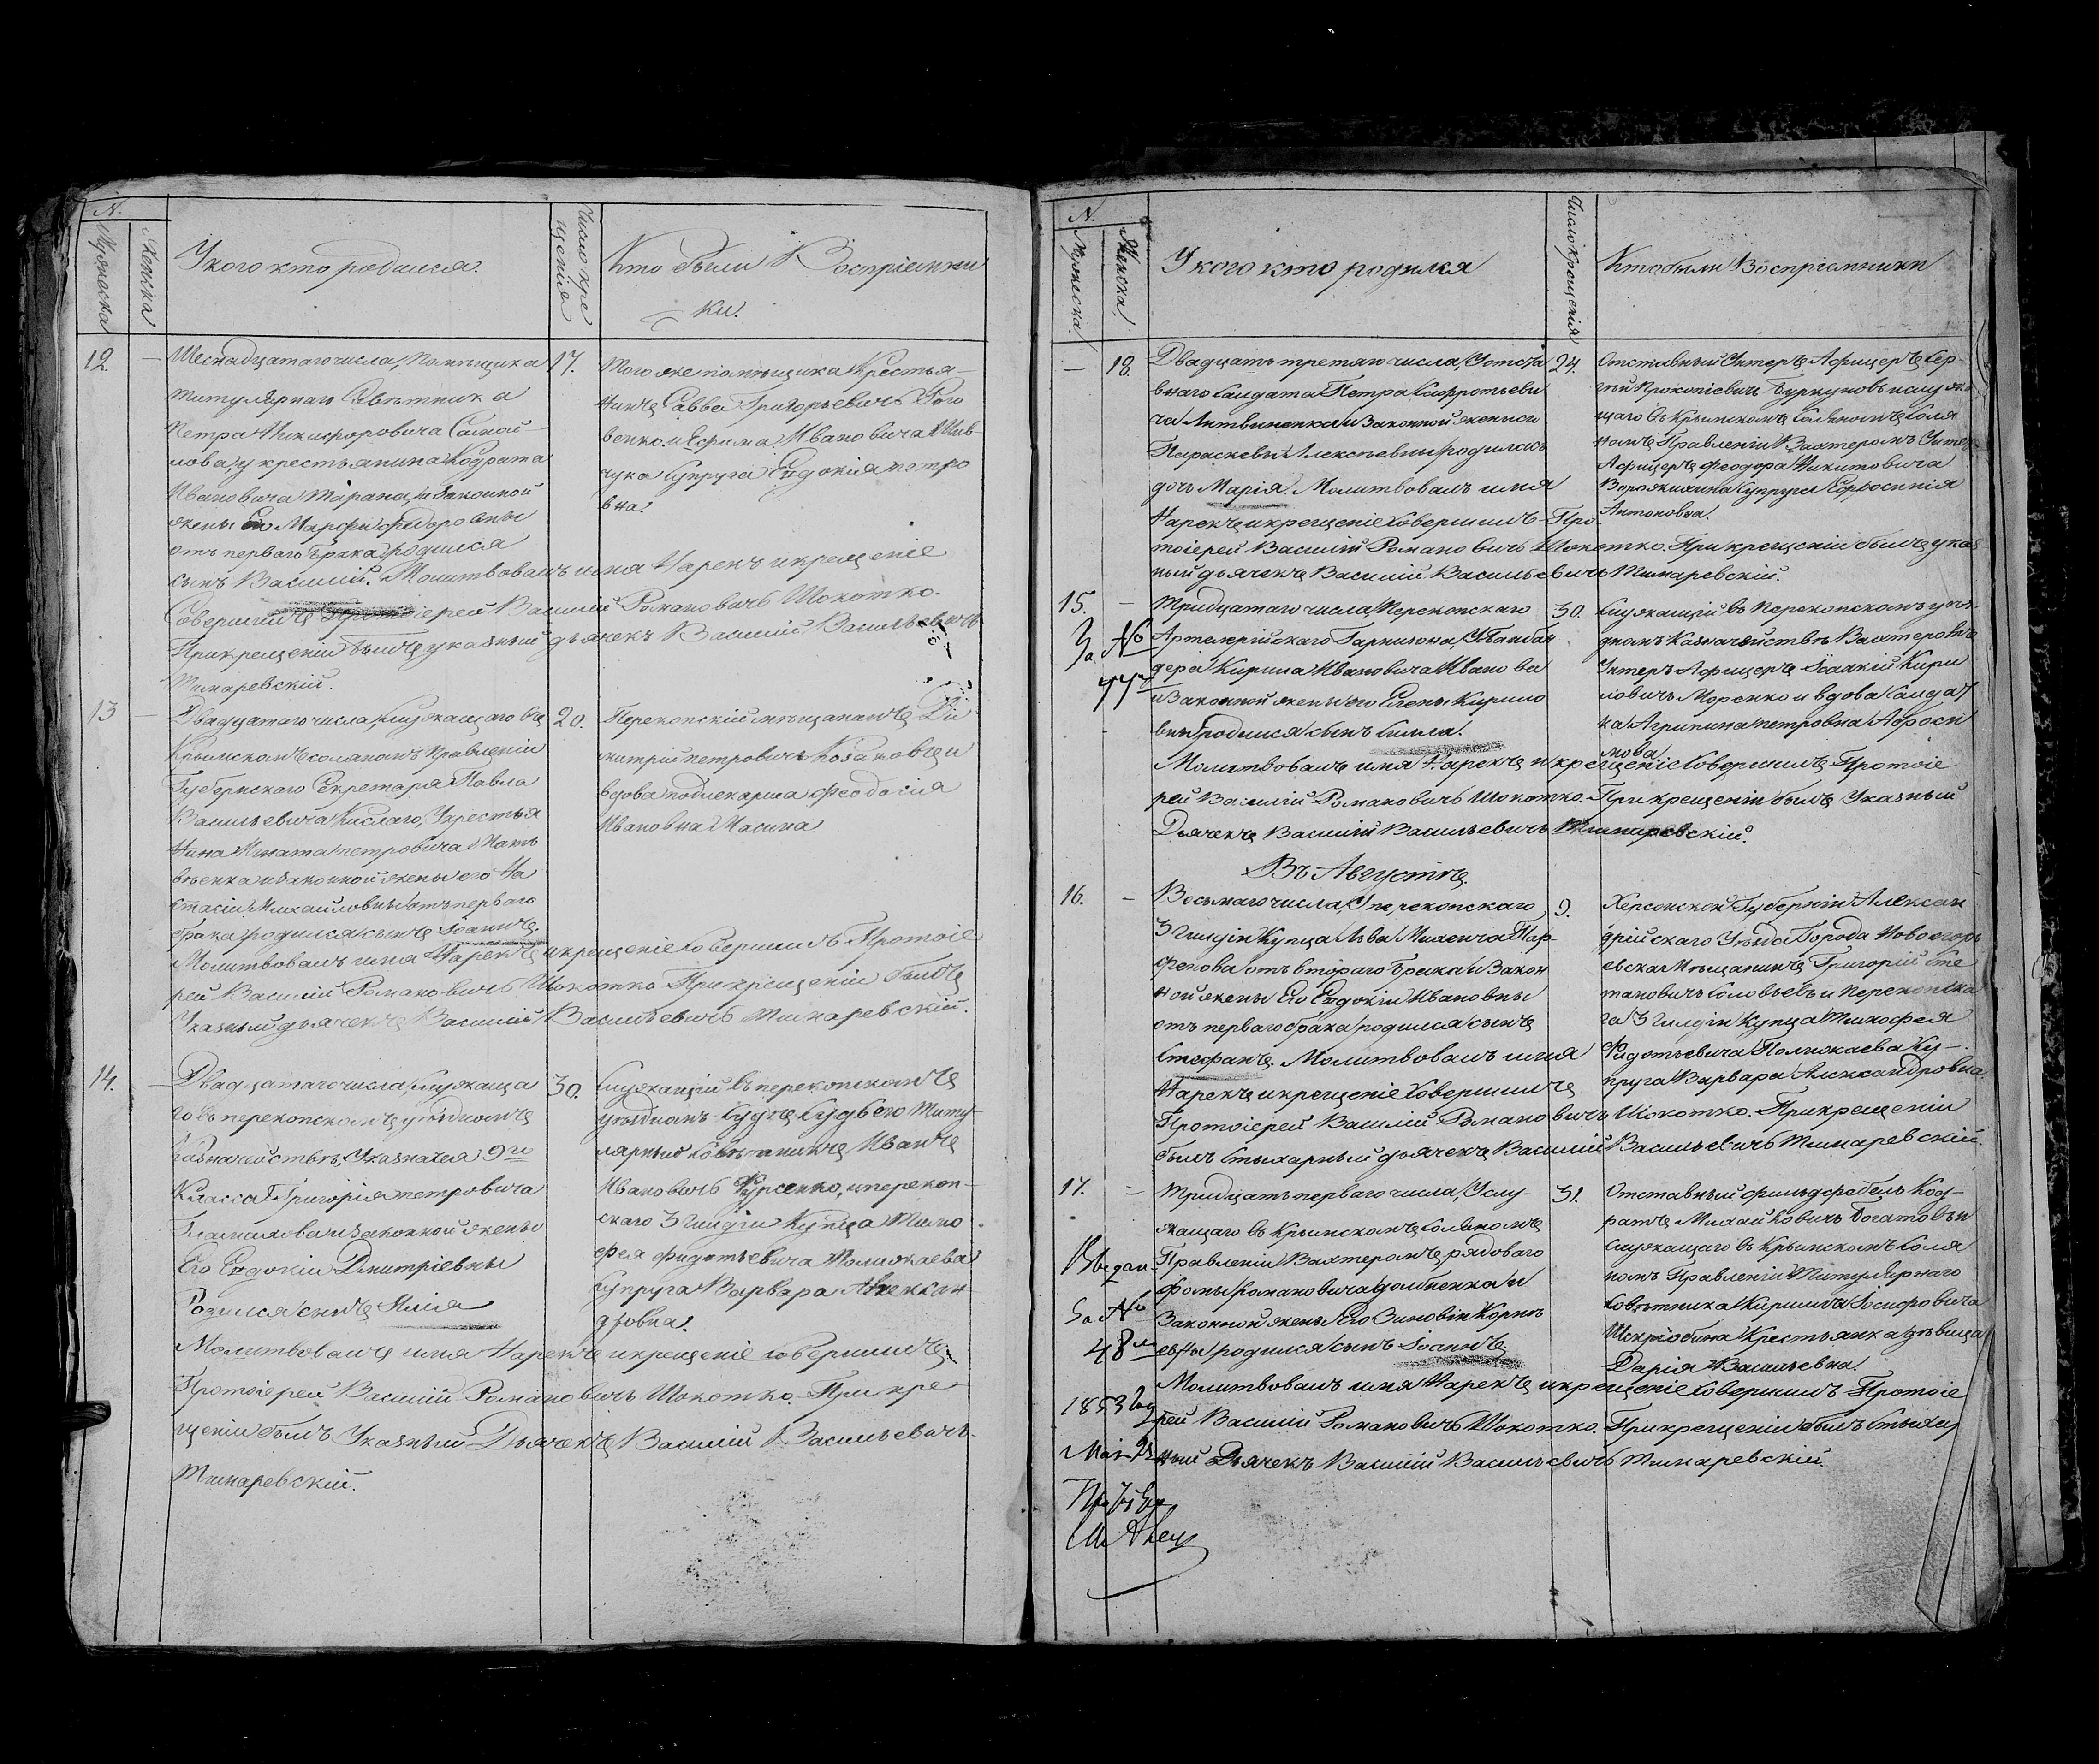 N.
Мужеска
Женска
У кого кто родился.
Число крещенія
Кто были Воспріемни
ки.
12.
—
Шеснадцатаго числа, Помѣщика
титулярнаго Совѣтника
Петра Никифоровича
лова, у крестьянина Кодрата
Ивановича Тарана, и законной
жены Его Марфы Федоровны
отъ перваго брака родился
сынъ Василій. Молитвовалъ имя Нарекъ и крещеніе
Совершилъ Протоіерей Василій Романовичъ Шокотко.
При крещеніи былъ указный дьячекъ Василій Васильевичъ
Тимаревскій.
17.
Того же помѣщика Крестья-
нинъ Савва Григорьевичъ
венко и Ефима Ивановича Шев-
чука Супруга Евдокія Петро
вна.
13
—
Двадцатаго числа, служащаго въ
Крымскомъ соляномъ Правленіи
Губернскаго Секретаря Павла
Васильевича Кислаго, У крестья
нина Игната Петровича
вѣенка и законной жены его На
стасіи Михайловны отъ перваго
брака родился сынъ Іоаннъ.
Молитвовалъ имя Нарекъ и крещеніе Совершилъ Протоіе
рей Василій Романовичъ Шокотко. При крещеніи былъ
Указный дьячекъ Василій Васильевичъ Тимаревскій.
20.
Перекопскій мѣщанинъ Ди
митрій Петровичъ и
вдова подлекарша Феодосія
Ивановна Масина
14.
—
Двадцатаго числа, служаща
го въ перекопскомъ уѣздномъ
Казначействѣ, Казначея 9го
Класса Григорія Петровича
и законной жены
Его Евдокіи Дмитріевны
Родился сынъ Илія
Молитвовалъ имя Нарекъ и крещеніе совершилъ
Протоіерей Василій Романовичъ Шокотко. При кре
щеніи былъ Указный Дьячекъ Василій Васильевичъ
Тимаревскій.
30.
Служащій въ перекопскомъ
уѣздномъ Судѣ Судьею Титу-
лярный Совѣтникъ Иванъ
Ивановичъ Фурсенко, и перекоп-
скаго 3 гилдіи Купца Тимо
фея Федотьевича
Супруга Варвара Алексан
дровна.
N.
Мужеска
Женска
У кого кто родился
Число Крещенія
Кто были Воспріемники
—
18.
Двадцать третяго числа, У отста
внаго Салдата Петра
ча Литвиненка и Законной жены его
Параскевы Алексѣевны родилась
дочь Марія. Молитвовалъ имя
Нарекъ и крещеніе Совершилъ Про
тоіерей Василій Романовичъ Шокотко. При крещеніи былъ указ
ный дьячекъ Василій Васильевичъ Тимаревскій.
24.
Отставный Унтеръ Афицеръ Сер-
гѣй Прокопіевичъ Буркуновъ и служа
щаго въ Крымскомъ Соляномъ
Правленіи Вахтеромъ Унтеръ
Афицера Феодора Никитовича
Супруга Ефросинія
Антоновна.
15.
—
За №
Тридцатаго числа, Перекопскаго
Артелерійскаго Гарнизона,
дера Кирила Ивановича Иванова
и Законной жены его Елены Кирило
вны родился сынъ Силла.
Молитвовалъ имя Нарекъ и крещеніе Совершилъ Протоіе
рей Василій Романовичъ Шокотко. При крещеніи былъ Указный
Дьячекъ Василій Васильевичъ Тимаревскій.
30.
Служащій въ Перекопскомъ уѣз-
дномъ Казначействѣ Вахтеромъ
Унтеръ Афицеръ Іоанкій Кири
ловичъ Моренко и вдова Салдат
ка Агрипина Петровна Афроси
мова
Въ Августѣ.
16.
—
Восьмаго числа, У перекопскаго
3 гилдіи Купца Льва Пар-
фенова отъ втораго брака и Закон
ной жены Его Евдокіи Ивановны
отъ перваго брака родился сынъ
Стефанъ. Молитвовалъ имя
Нарекъ и крещеніе Совершилъ
Протоіерей Василій Романовичъ Шокотко. При крещеніи
былъ Стихарный дьячекъ Василій Васильевичъ Тимаревскій.
9.
Херсонской Губерніи Алексан
дрійскаго Уѣзда Города Новогеорг
евска Мѣщанинъ Григорій Сте
пановичъ Соловьевъ и Перекопска
го 3 гилдіи Купца Тимофея
Федотьевича Су-
пруга Варвара Александровна.
17.
—
Выдан
За №
48
1853 год
Мая 21
Тридцать перваго числа, У слу-
жащаго въ Крымскомъ Соляномъ
Правленіи Вахтеромъ рядоваго
Фомы Романовича и
Законной жены Его Зиновіи Корнѣ
евны родился сынъ Іоаннъ
Молитвовалъ имя Нарекъ и крещеніе Совершилъ Протоіе
рей Василій Романовичъ Шокотко. При крещеніи былъ Стихар
ный Дьячекъ Василій Васильевичъ Тимаревскій.
31.
Отставный фельдфебель Код-
ратъ Богатовъ и
служащаго въ Крымскомъ Соля
номъ Правленіи Титулярнаго
Совѣтника Кирилла Іосифовича
Крестьянка дѣвица
Дарія Васильевна.